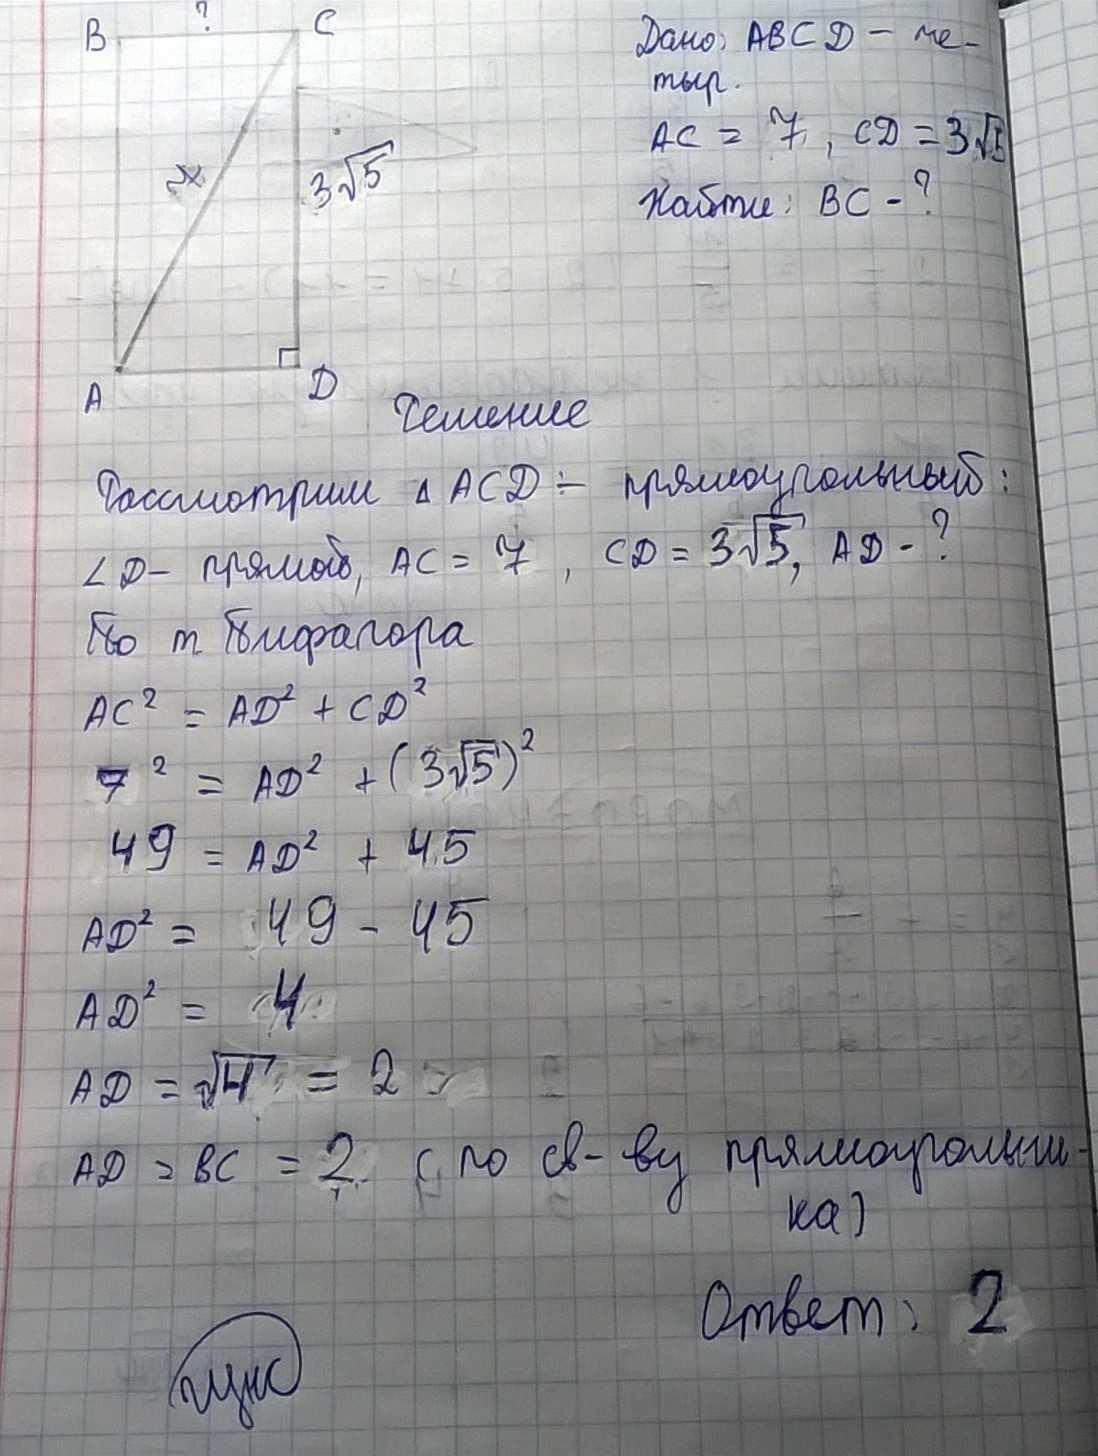 B ? C
7
3√5
A D
Дано: ABCD - че-
тыр.
AC = 7, CD = 3√5
Найти: BC - ?
Решение
Рассмотрим △ ACD - прямоугольный:
∠D - прямой, AC = 7, CD = 3√5, AD - ?
По т Пифагора
AC² = AD² + CD²
7² = AD² + (3√5)²
49 = AD² + 45
AD² = 49 - 45
AD² = 4
AD = √4 = 2
AD = BC = 2 (по св-ву прямоугольни-
ка)
Ответ: 2